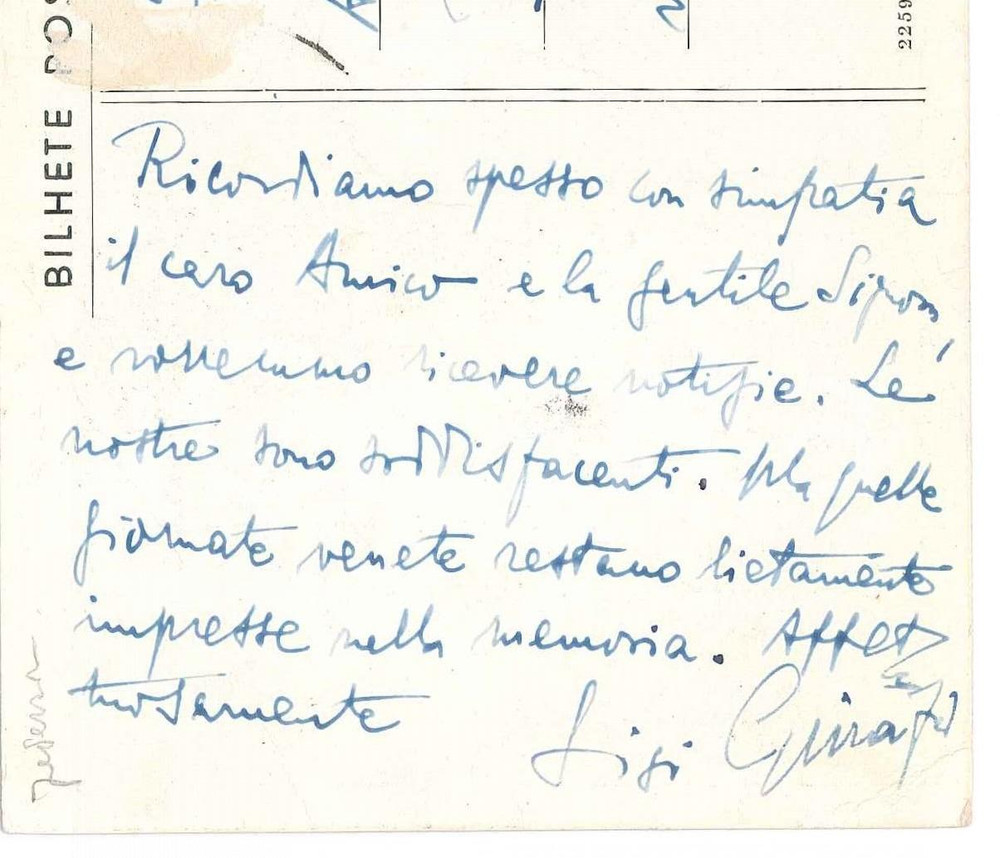 BILHETE POS
2259
Ricordiamo spesso con simpatia
il caro Amico e la gentile Signora,
e vorremmo ricevere notizie. Le
nostre sono soddisfacenti. Ma quelle
giornate venete restano lietamente
impresse nella memoria. Affet-
tuosamente
Gigi